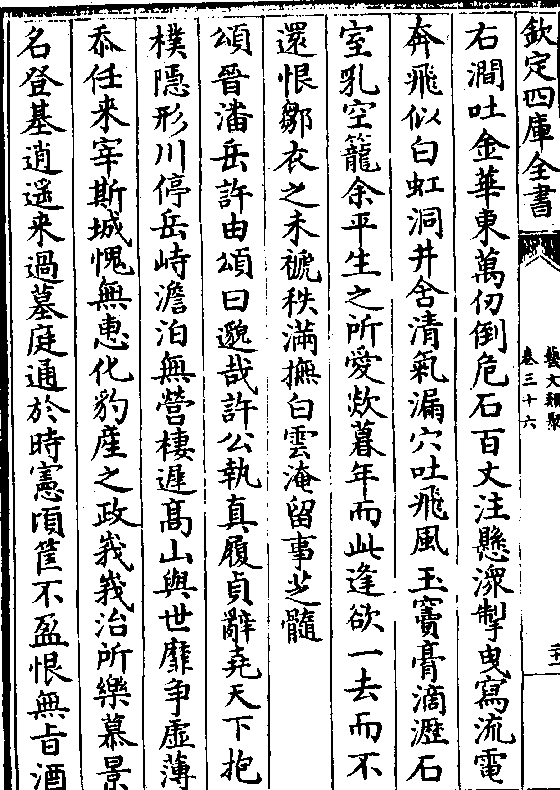 欽定四庫全書
藝文類聚
卷三十六
右澗吐金華東萬仞倒危石百丈注懸潨掣曳寫流電
奔飛似白虹洞井含清氣漏穴吐飛風玉竇膏滴瀝石
室乳空籠余平生之所愛欻暮年而此逢欲一去而不
還恨鄒衣之未褫秩滿撫白雲淹留事芝髓
頌晉潘岳許由頌曰邈哉許公執真履貞辭堯天下抱
樸隱形川停岳峙澹泊無營棲遲髙山與世靡争虛薄
忝任来宰斯城愧無惠化豹産之政峩峩治所樂慕景
名登基逍遥来過墓庭通於時憲頃筐不盈恨無旨酒